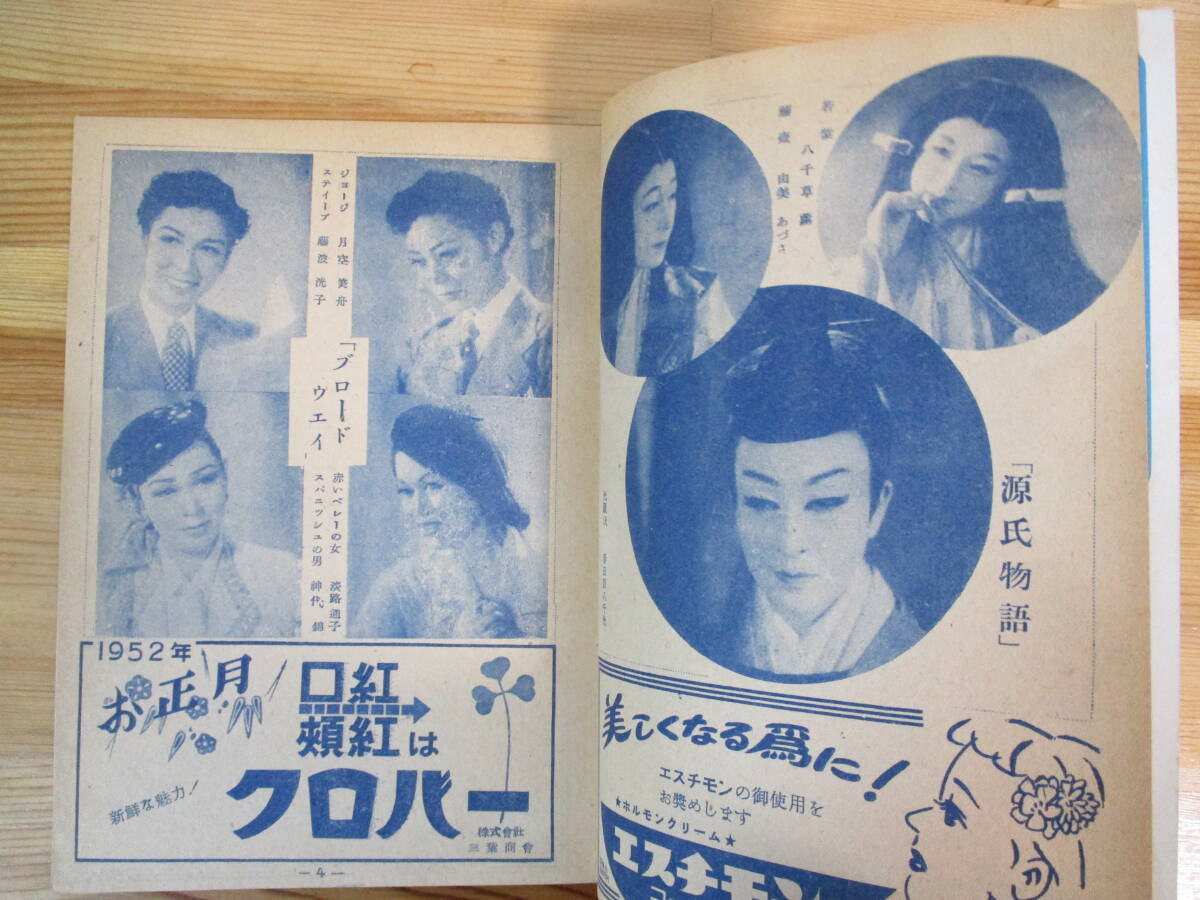 ジョージ 月空美舟
スティーブ 藤波洸子
「ブロード
ウエイ
赤いベレーの女 淡路通子
スパニッシュの男 神代錦
1952年
お正月
口紅
頬紅は
クロバー
新鮮な魅力!
株式會社
三葉商會
—4—
若紫 八千草薫
藤壺 由美あづさ
「源氏物語」
光源氏 春日野八千代
美しくなる爲に!
エスチモンの御使用を
お奬めします
★ホルモンクリーム★
エスチモン